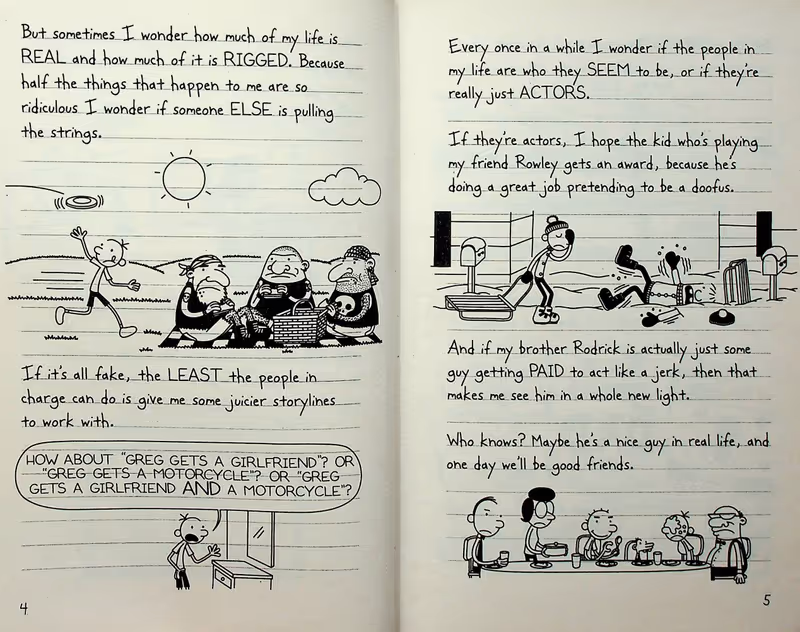 But sometimes I wonder how much of my life is
REAL and how much of it is RIGGED. Because
half the things that happen to me are so
ridiculous I wonder if someone ELSE is pulling
the strings.
If it's all fake, the LEAST the people in
charge can do is give me some juicier storylines
to work with.
HOW ABOUT "GREG GETS A GIRLFRIEND"? OR
"GREG GETS A MOTORCYCLE"? OR "GREG
GETS A GIRLFRIEND AND A MOTORCYCLE"?
4
Every once in a while I wonder if the people in
my life are who they SEEM to be, or if they're
really just ACTORS.
If they're actors, I hope the kid who's playing
my friend Rowley gets an award, because he's
doing a great job pretending to be a doofus.
And if my brother Rodrick is actually just some
guy getting PAID to act like a jerk, then that
makes me see him in a whole new light.
Who knows? Maybe he's a nice guy in real life, and
one day we'll be good friends.
5